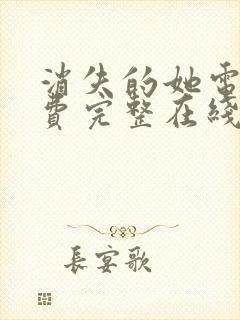 消失的她電
費完整在綫
長宴歌